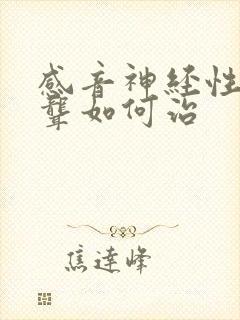 感音神经性
聋如何治
焦達峰